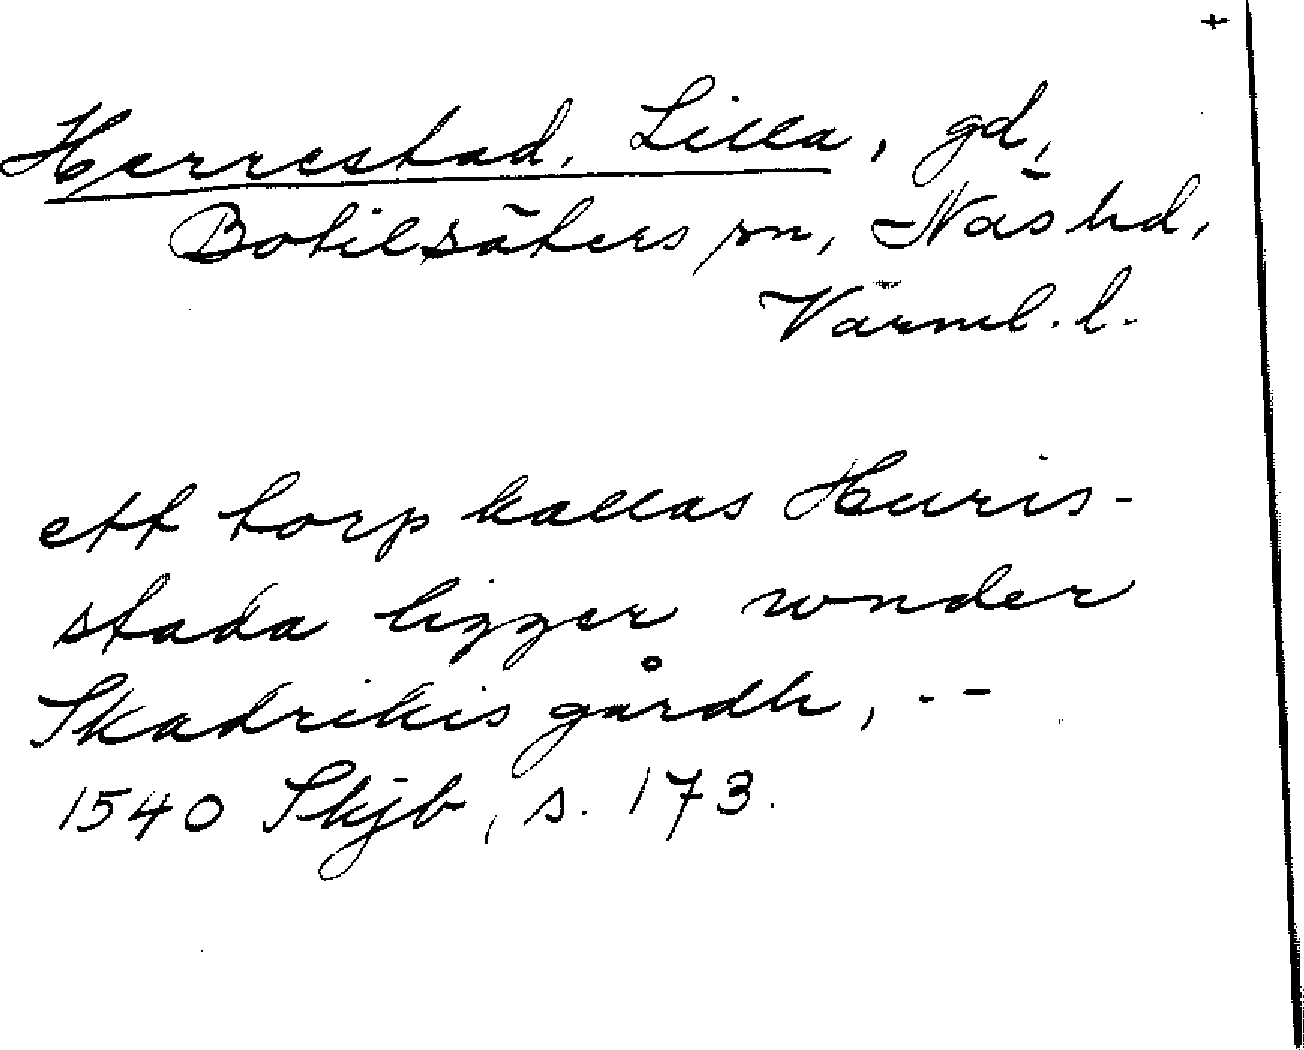 +
Herrestad, Lilla, gd,
Botilsäters sn, Näs hd,
Värml. l.
ett torp kallas Heuris-
stada ligger wnder
Skadrikis gårdh, - -
1540 Skjb, s. 173.